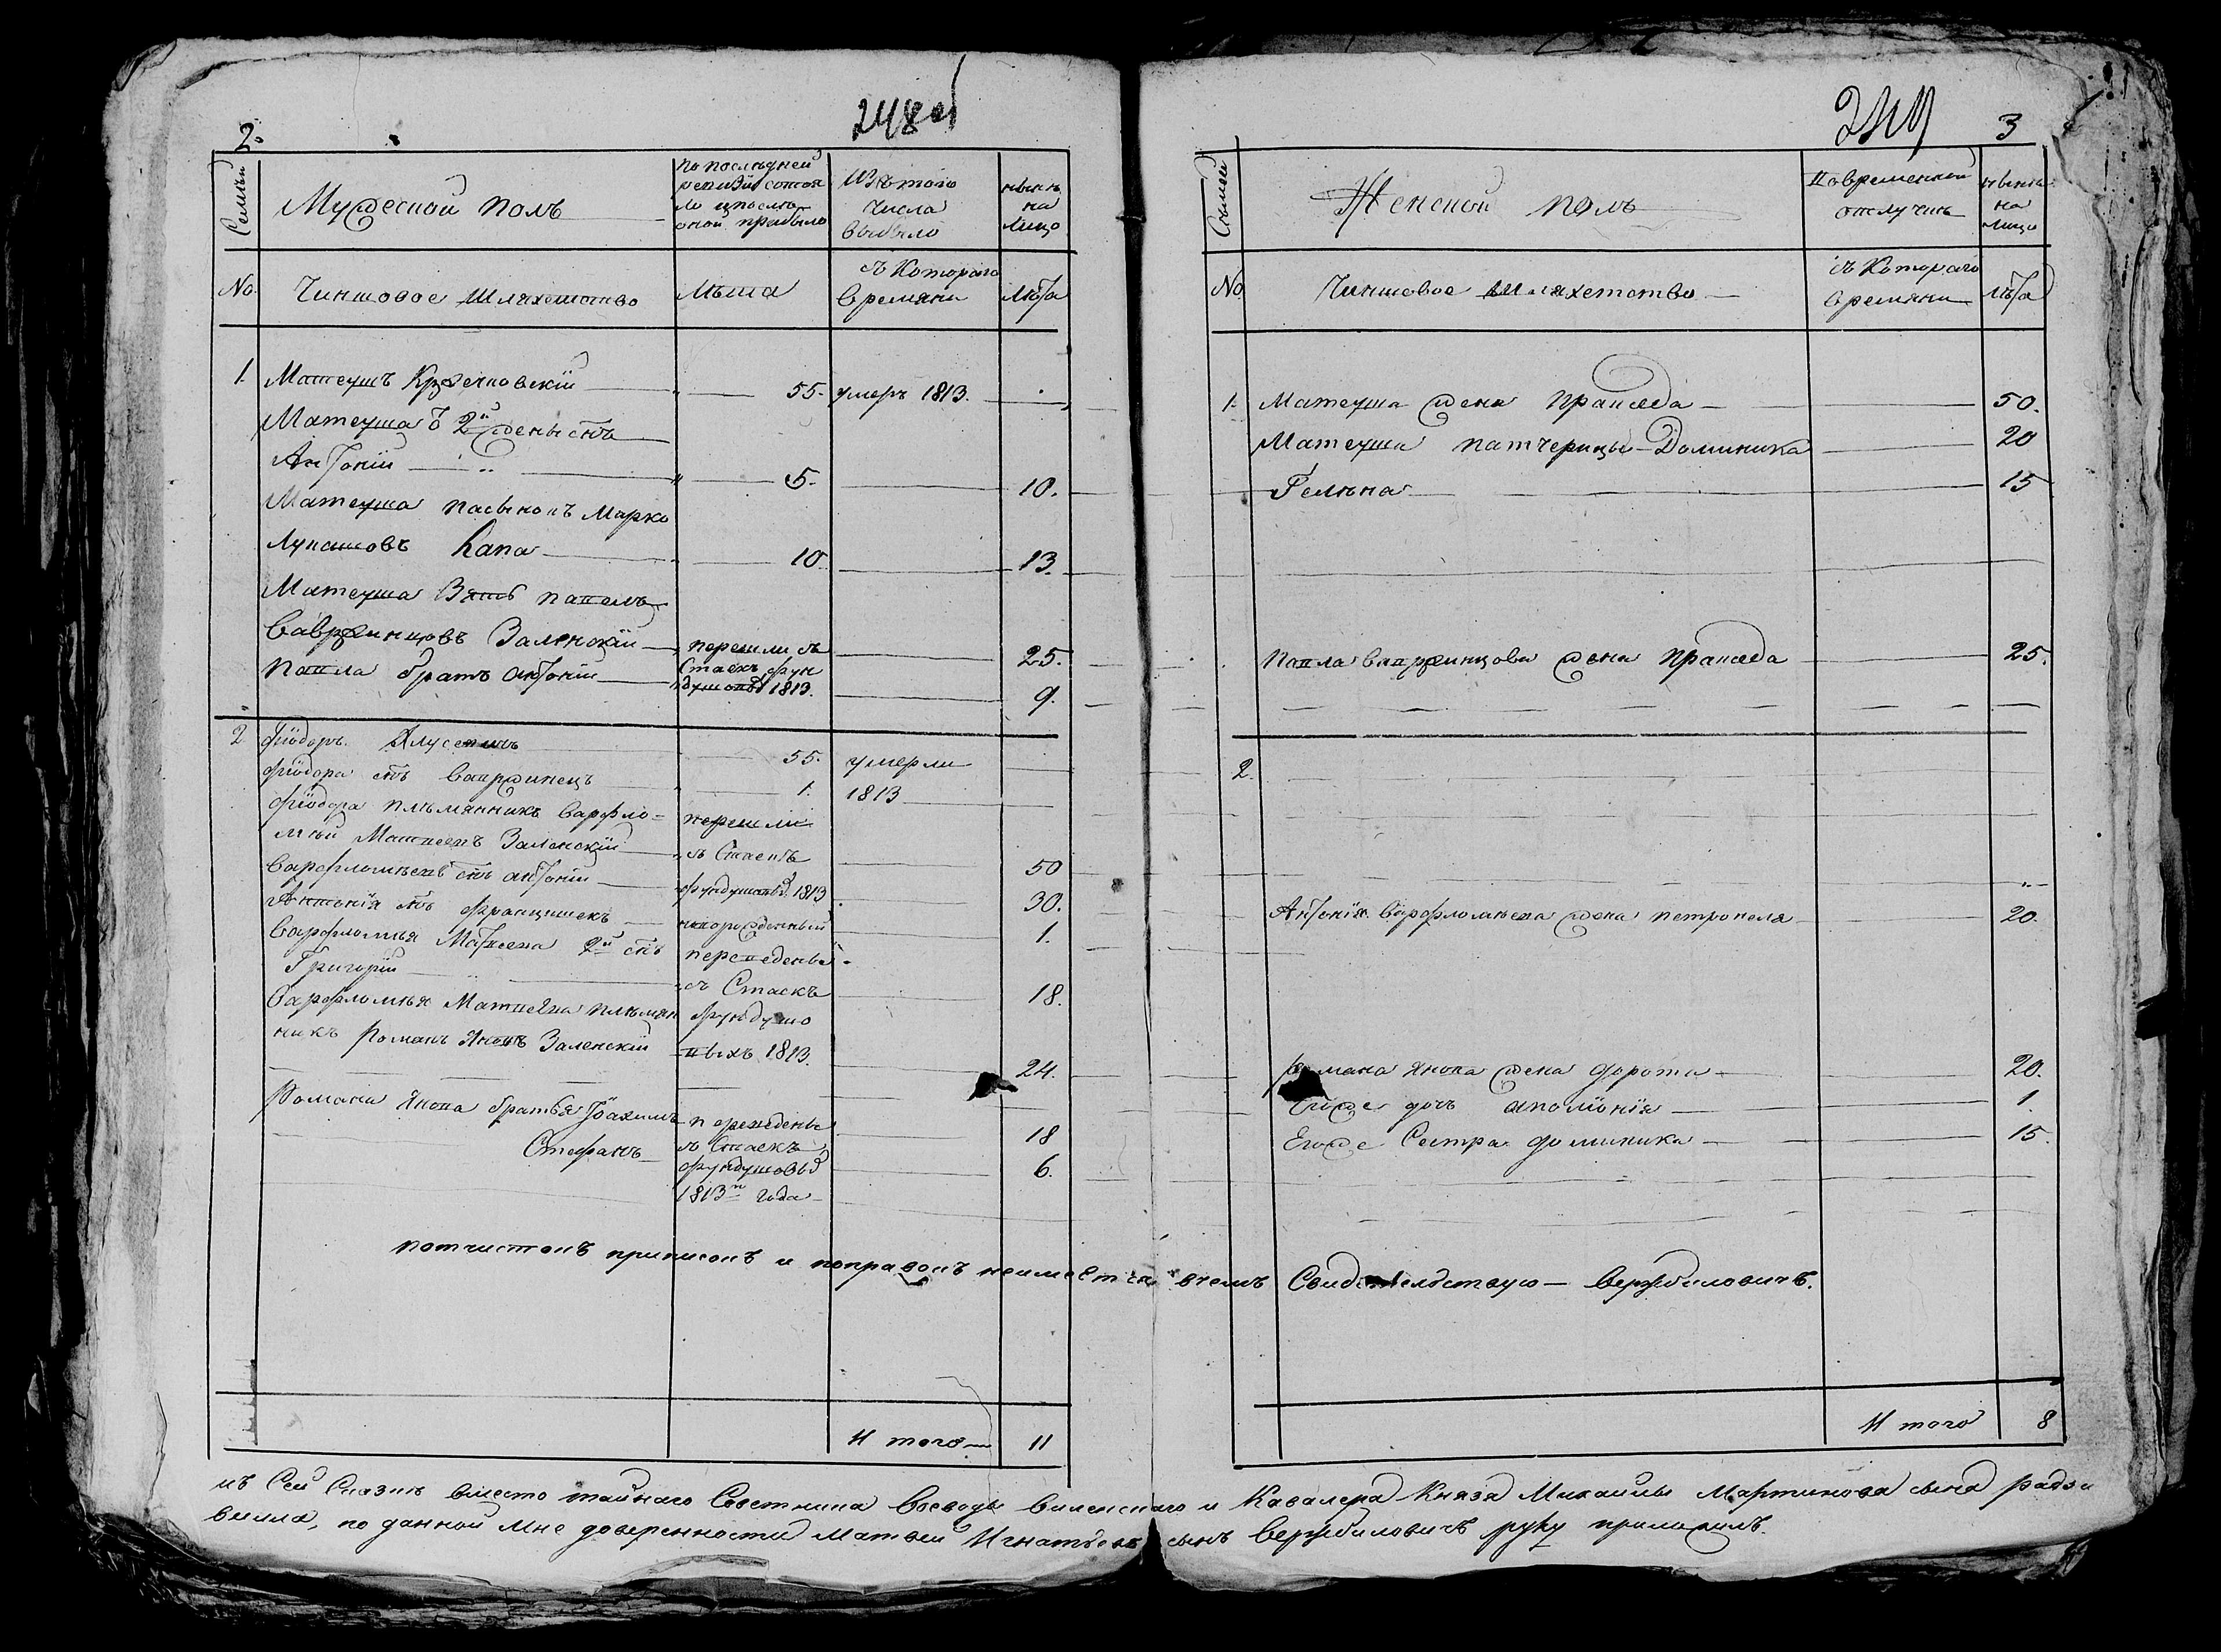 2.
248 об
Семьи
Мужеской полъ
по последней
ревизіи состоя
ло и после
оной прибыло
Изъ того
числа
выбыло
ныне
на
лицо
No.
Чиншовое Шляхетство
Лета
съ Котораго
времяни
Лета
1. Матеушъ 55. умеръ 1813.
Матеуша 2й жены снъ
Антоній 5. 10.
Матеуша пасынокъ Марко
Лукашовъ Капа 10. 13.
Матеуша Зять Павелъ
Вавржинцовъ Заленскій перешли съ 25.
Павла братъ Антоній 1813. 9.
2 Фіодоръ 55. умерли
Фіодора снъ Вавржинецъ 1. 1813
Фіодора племянникъ Варфло=
мей Матвеевъ Заленскій перешли съ 50
Варфломеевъ снъ Антоній фундушовыхъ 1813 30.
Антонія снъ Францишекъ новорожденный 1.
Варфломея Матвеева 2й снъ переведены
Григорій съ 18.
Варфломея Матвеева племян
никъ Романъ Яновъ Заленскій 1813. 24.
Романа Янова братья Іоахимъ переведены 18
Стефанъ съ фундушовыхъ 6.
1813го года
Итого 11
249
3
Семьи
Женской полъ
Во временной
отлучке
ныне
на
лицо
No
Чиншовое шляхетство
съ Котораго
времяни
лета
1. Матеуша жена Праксeда 50.
Матеуша патчерицы Доминика 20
Гелена 15
Павла Вавржинцова жена Праксeда 25.
2.
Антонія Варфломеева жена Петронеля 20.
Романа Янова жена Дорота 20.
Егоже дочъ Аполіонія 1.
Егоже Сестра Доминика 15.
потчистокъ приписокъ и поправокъ неимеется вчемъ Свидетелствую — Вержбиловичъ.
Итого 8
къ Сей Сказке вместо тайнаго Советника Воеводы Виленскаго и Кавалера Князя Михайлы Мартинова сына Радзи
вилла, по данной мне доверенности Матвей Игнатьевъ сынъ Вержбиловичъ руку приложилъ.